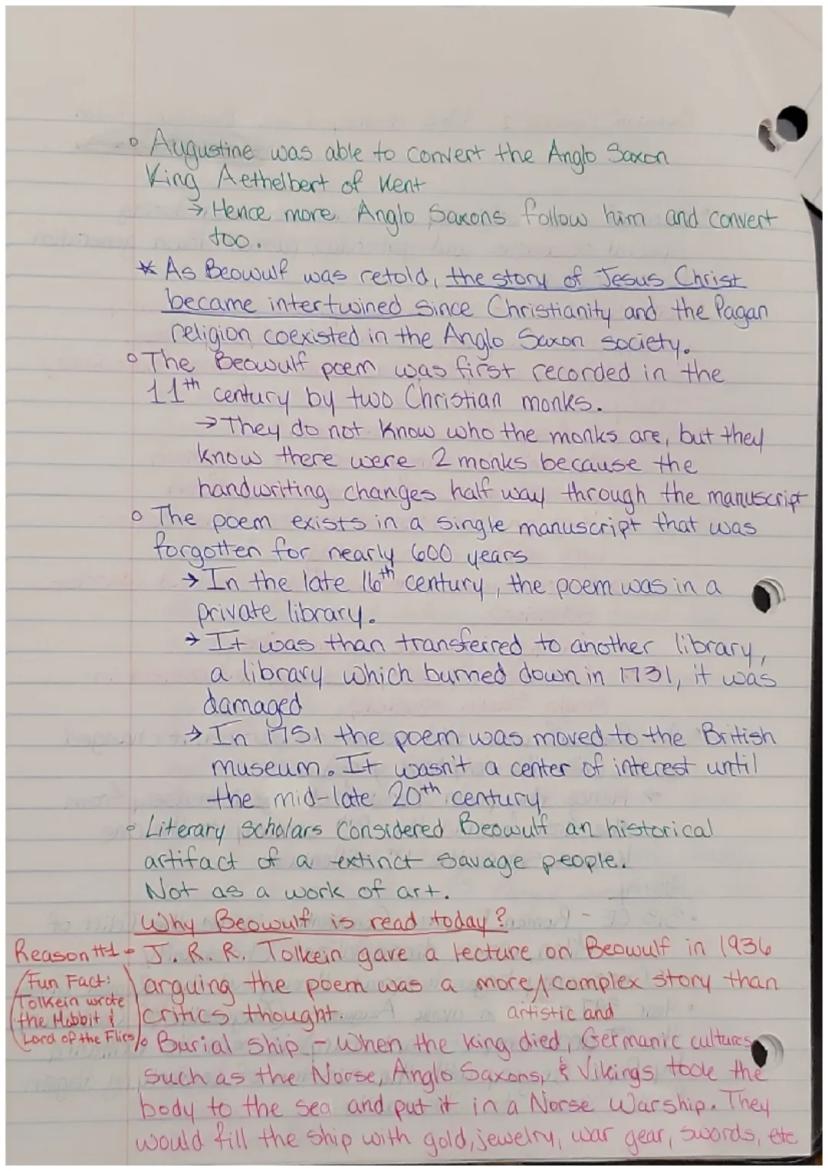 ◦ Augustine was able to convert the Anglo Saxon
King Aethelbert of Kent
→ Hence more Anglo Saxons follow him and convert
too.
* As Beowulf was retold, the story of Jesus Christ
became intertwined since Christianity and the Pagan
religion coexisted in the Anglo Saxon society.
◦ The Beowulf poem was first recorded in the
11th century by two Christian monks.
→ They do not know who the monks are, but they
know there were 2 monks because the
handwriting changes half way through the manuscript
◦ The poem exists in a single manuscript that was
forgotten for nearly 600 years
→ In the late 16th century, the poem was in a
private library.
→ It was than transferred to another library,
a library which burned down in 1731, it was
damaged
→ In 1751 the poem was moved to the British
museum. It wasn't a center of interest until
the mid-late 20th century
◦ Literary scholars considered Beowulf an historical
artifact of a extinct savage people.
Not as a work of art.
Why Beowulf is read today? -
Reason #1 - J. R. R. Tolkein gave a lecture on Beowulf in 1936
arguing the poem was a more ^ complex story than
critics thought. artistic and
(Fun Fact:
Tolkein wrote
the Hobbit &
Lord of the Flies)
◦ Burial ship - When the king died, Germanic cultures
such as the Norse, Anglo Saxons, & Vikings took the
body to the sea and put it in a Norse Warship. They
would fill the ship with gold, jewelry, war gear, swords, etc